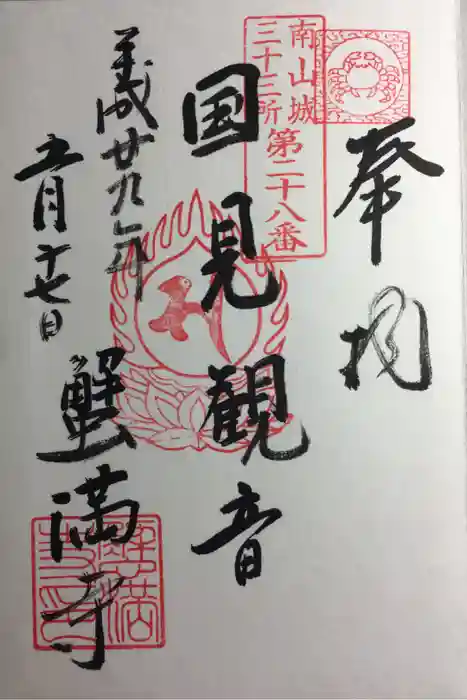 奉拝
南山城
三十三所
第二十八番
国見観音
平成廿九年
五月十七日
蟹満寺